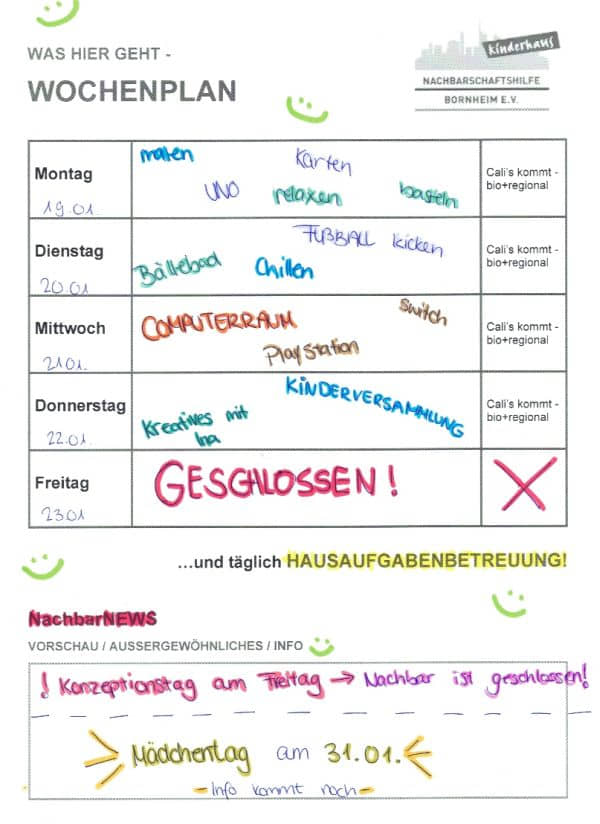 WAS HIER GEHT -
WOCHENPLAN
kinderhaus
NACHBARSCHAFTSHILFE
BORNHEIM E.V.
Montag
19.01.
malen
Karten
UNO
relaxen
basteln
Cali's kommt -
bio+regional
Dienstag
20.01
FUßBALL kicken
Bällebad
Chillen
Cali's kommt -
bio+regional
Mittwoch
21.01.
COMPUTERRAUM
Switch
PlayStation
Cali's kommt -
bio+regional
Donnerstag
22.01.
KINDERVERSAMMLUNG
Kreatives mit
Ina
Cali's kommt -
bio+regional
Freitag
23.01
GESCHLOSSEN!
X
...und täglich HAUSAUFGABENBETREUUNG!
NachbarNEWS
VORSCHAU / AUSSERGEWÖHNLICHES / INFO
! Konzeptionstag am Freitag → Nachbar ist geschlossen!
Mädchentag am 31.01.
- Info kommt noch -